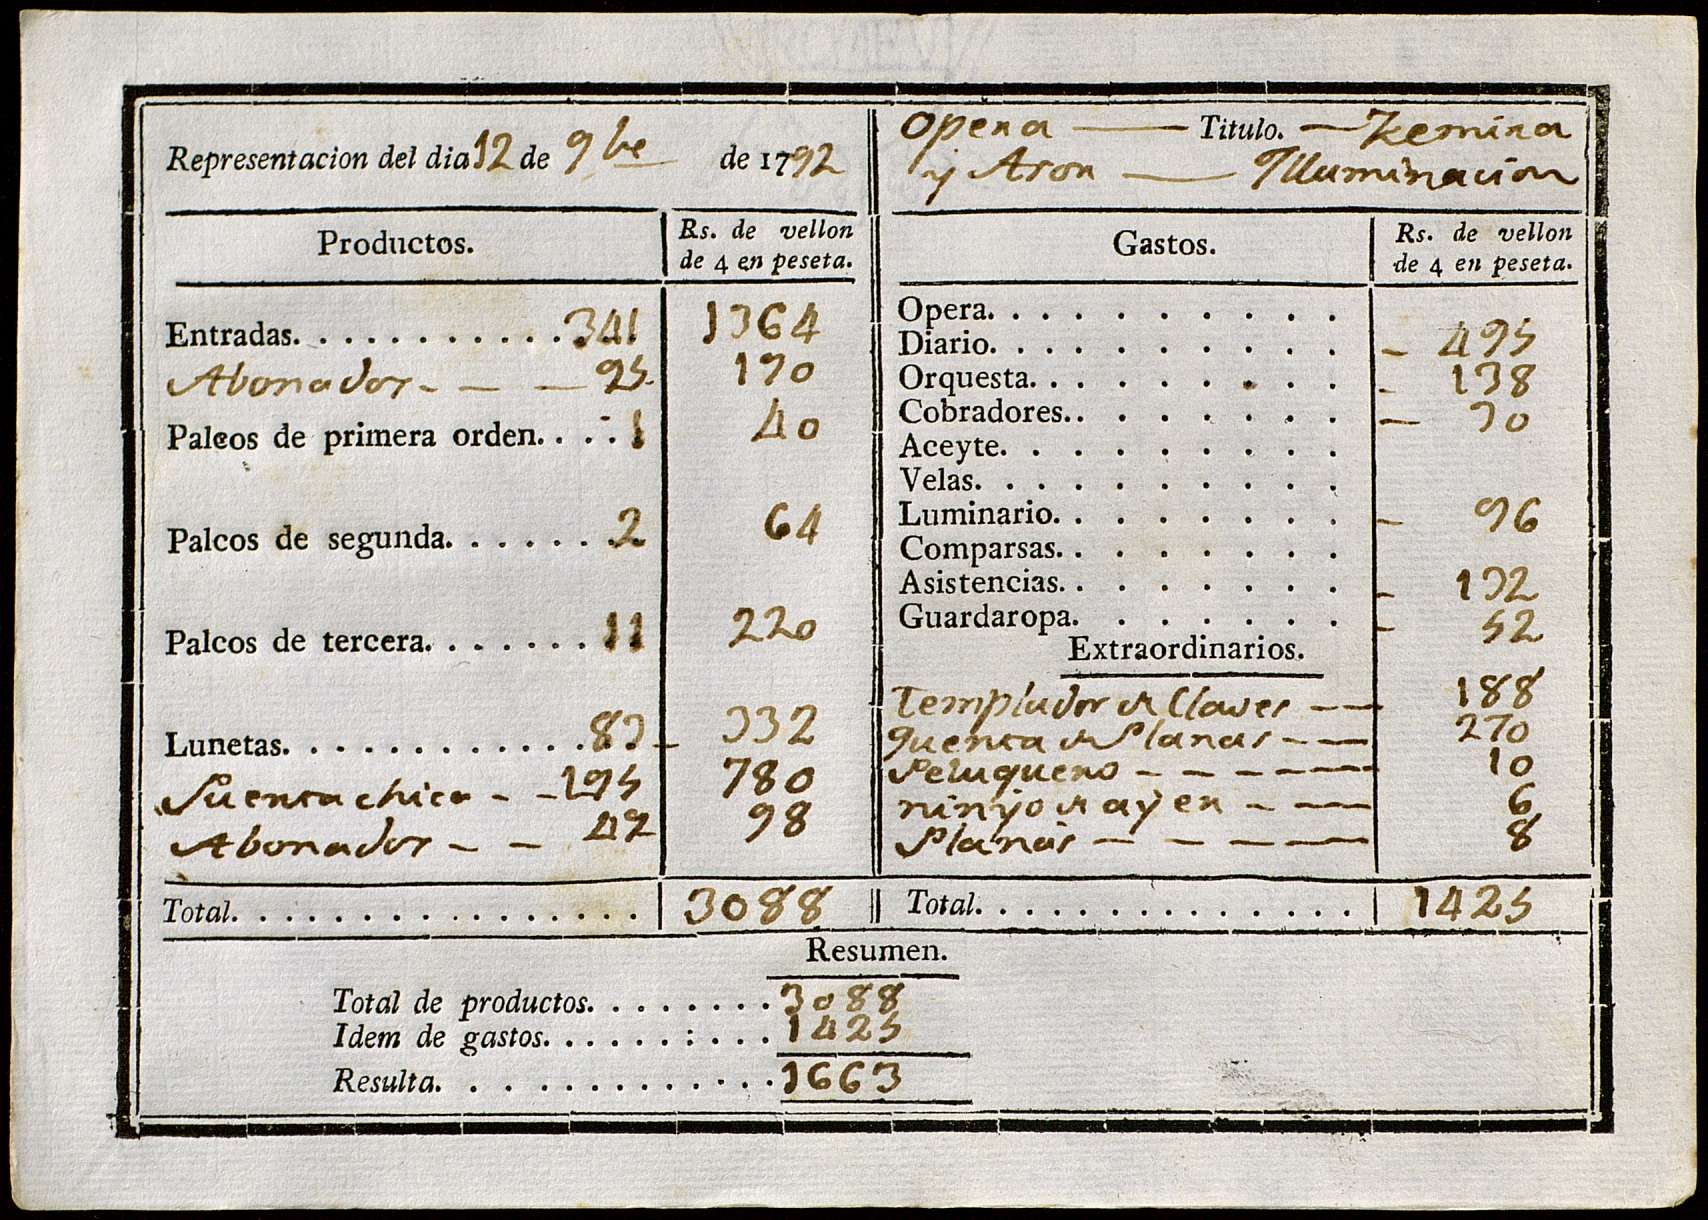 Representacion del dia 12 de 9bre de 1792
Opera — Titulo. — Zemira
y Asor — Illuminacion
Productos. Rs. de vellon de 4 en peseta.
Entradas. 341 1364
Abonados - - - 95 190
Palcos de primera orden. 1 40
Palcos de segunda. 2 64
Palcos de tercera. 11 220
Lunetas. 83 - 332
Puerta chica - - 195 780
Abonados - - 49 98
Total. 3088
Gastos. Rs. de vellon de 4 en peseta.
Opera.
Diario. - 495
Orquesta. - 138
Cobradores. - 30
Aceyte.
Velas.
Luminario. - 96
Comparsas.
Asistencias. - 132
Guardaropa. - 52
Extraordinarios.
Templador de Claves - - 188
quenta de Planas - - 270
Peluquero - - - - 10
ninyo de ayer - - - 6
Planas - - - - 8
Total. 1425
Resumen.
Total de productos. 3088
Idem de gastos. 1425
Resulta. 1663